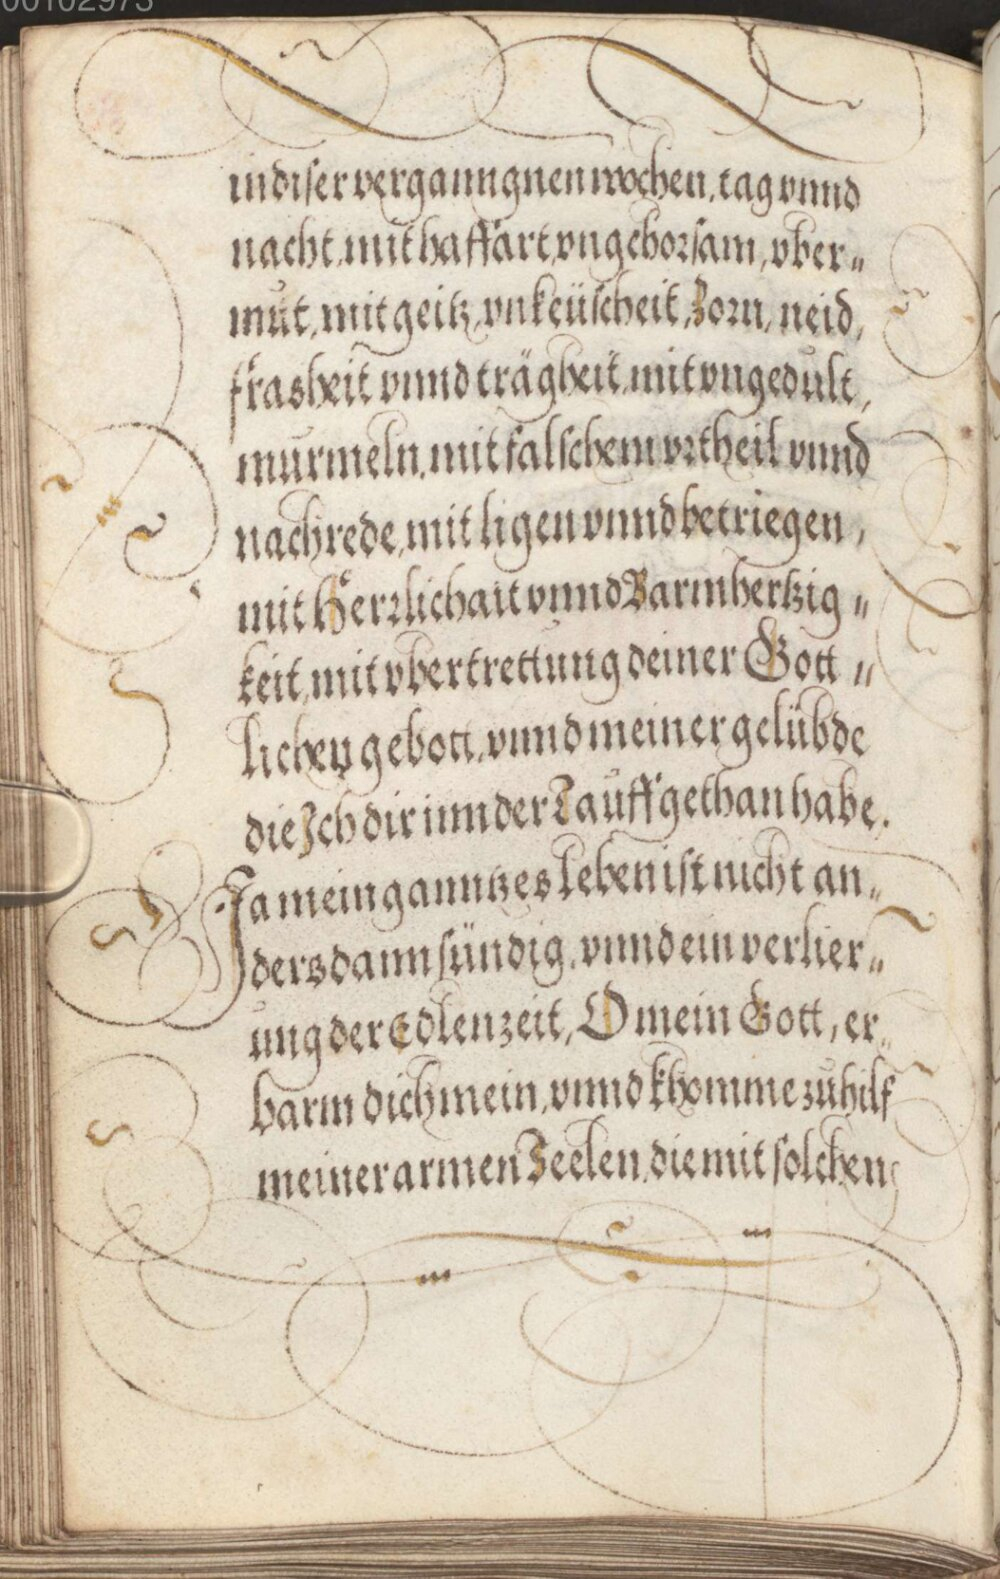 00102973
in diser vergangnen wochen, tag vnnd
nacht, mit haffart, vngehorsam, vber„
mut, mit geitz, vnkeüscheit, Zorn, neid,
frasheit vnnd trägheit, mit vngedult,
murmeln, mit falschem vrtheil vnnd
nachrede, mit ligen vnnd betriegen,
mit Herrlichait vnnd Barmhertzig„
keit, mit vbertrettung deiner Gott„
lichen gebott, vnnd meiner gelübde
die Ich dir inn der Tauff gethan habe.
Ja mein ganntzes Leben ist nicht an„
ders dann sündig, vnnd ein verlier„
ung der Edlen zeit, O mein Gott, er„
barm dich mein, vnnd khomme zu hilf
meiner armen Seelen, die mit solchen